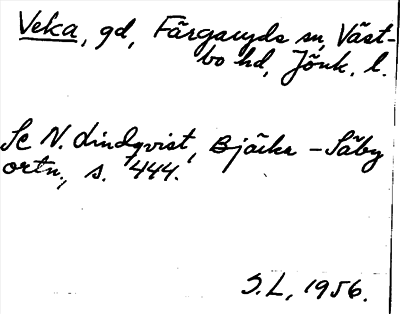 Veka, gd, Färgaryds sn, Väst-
bo hd, Jönk. l.
Se N. Lindqvist, Bjärka-Säby
ortn., s. 444.
S.L, 1956.